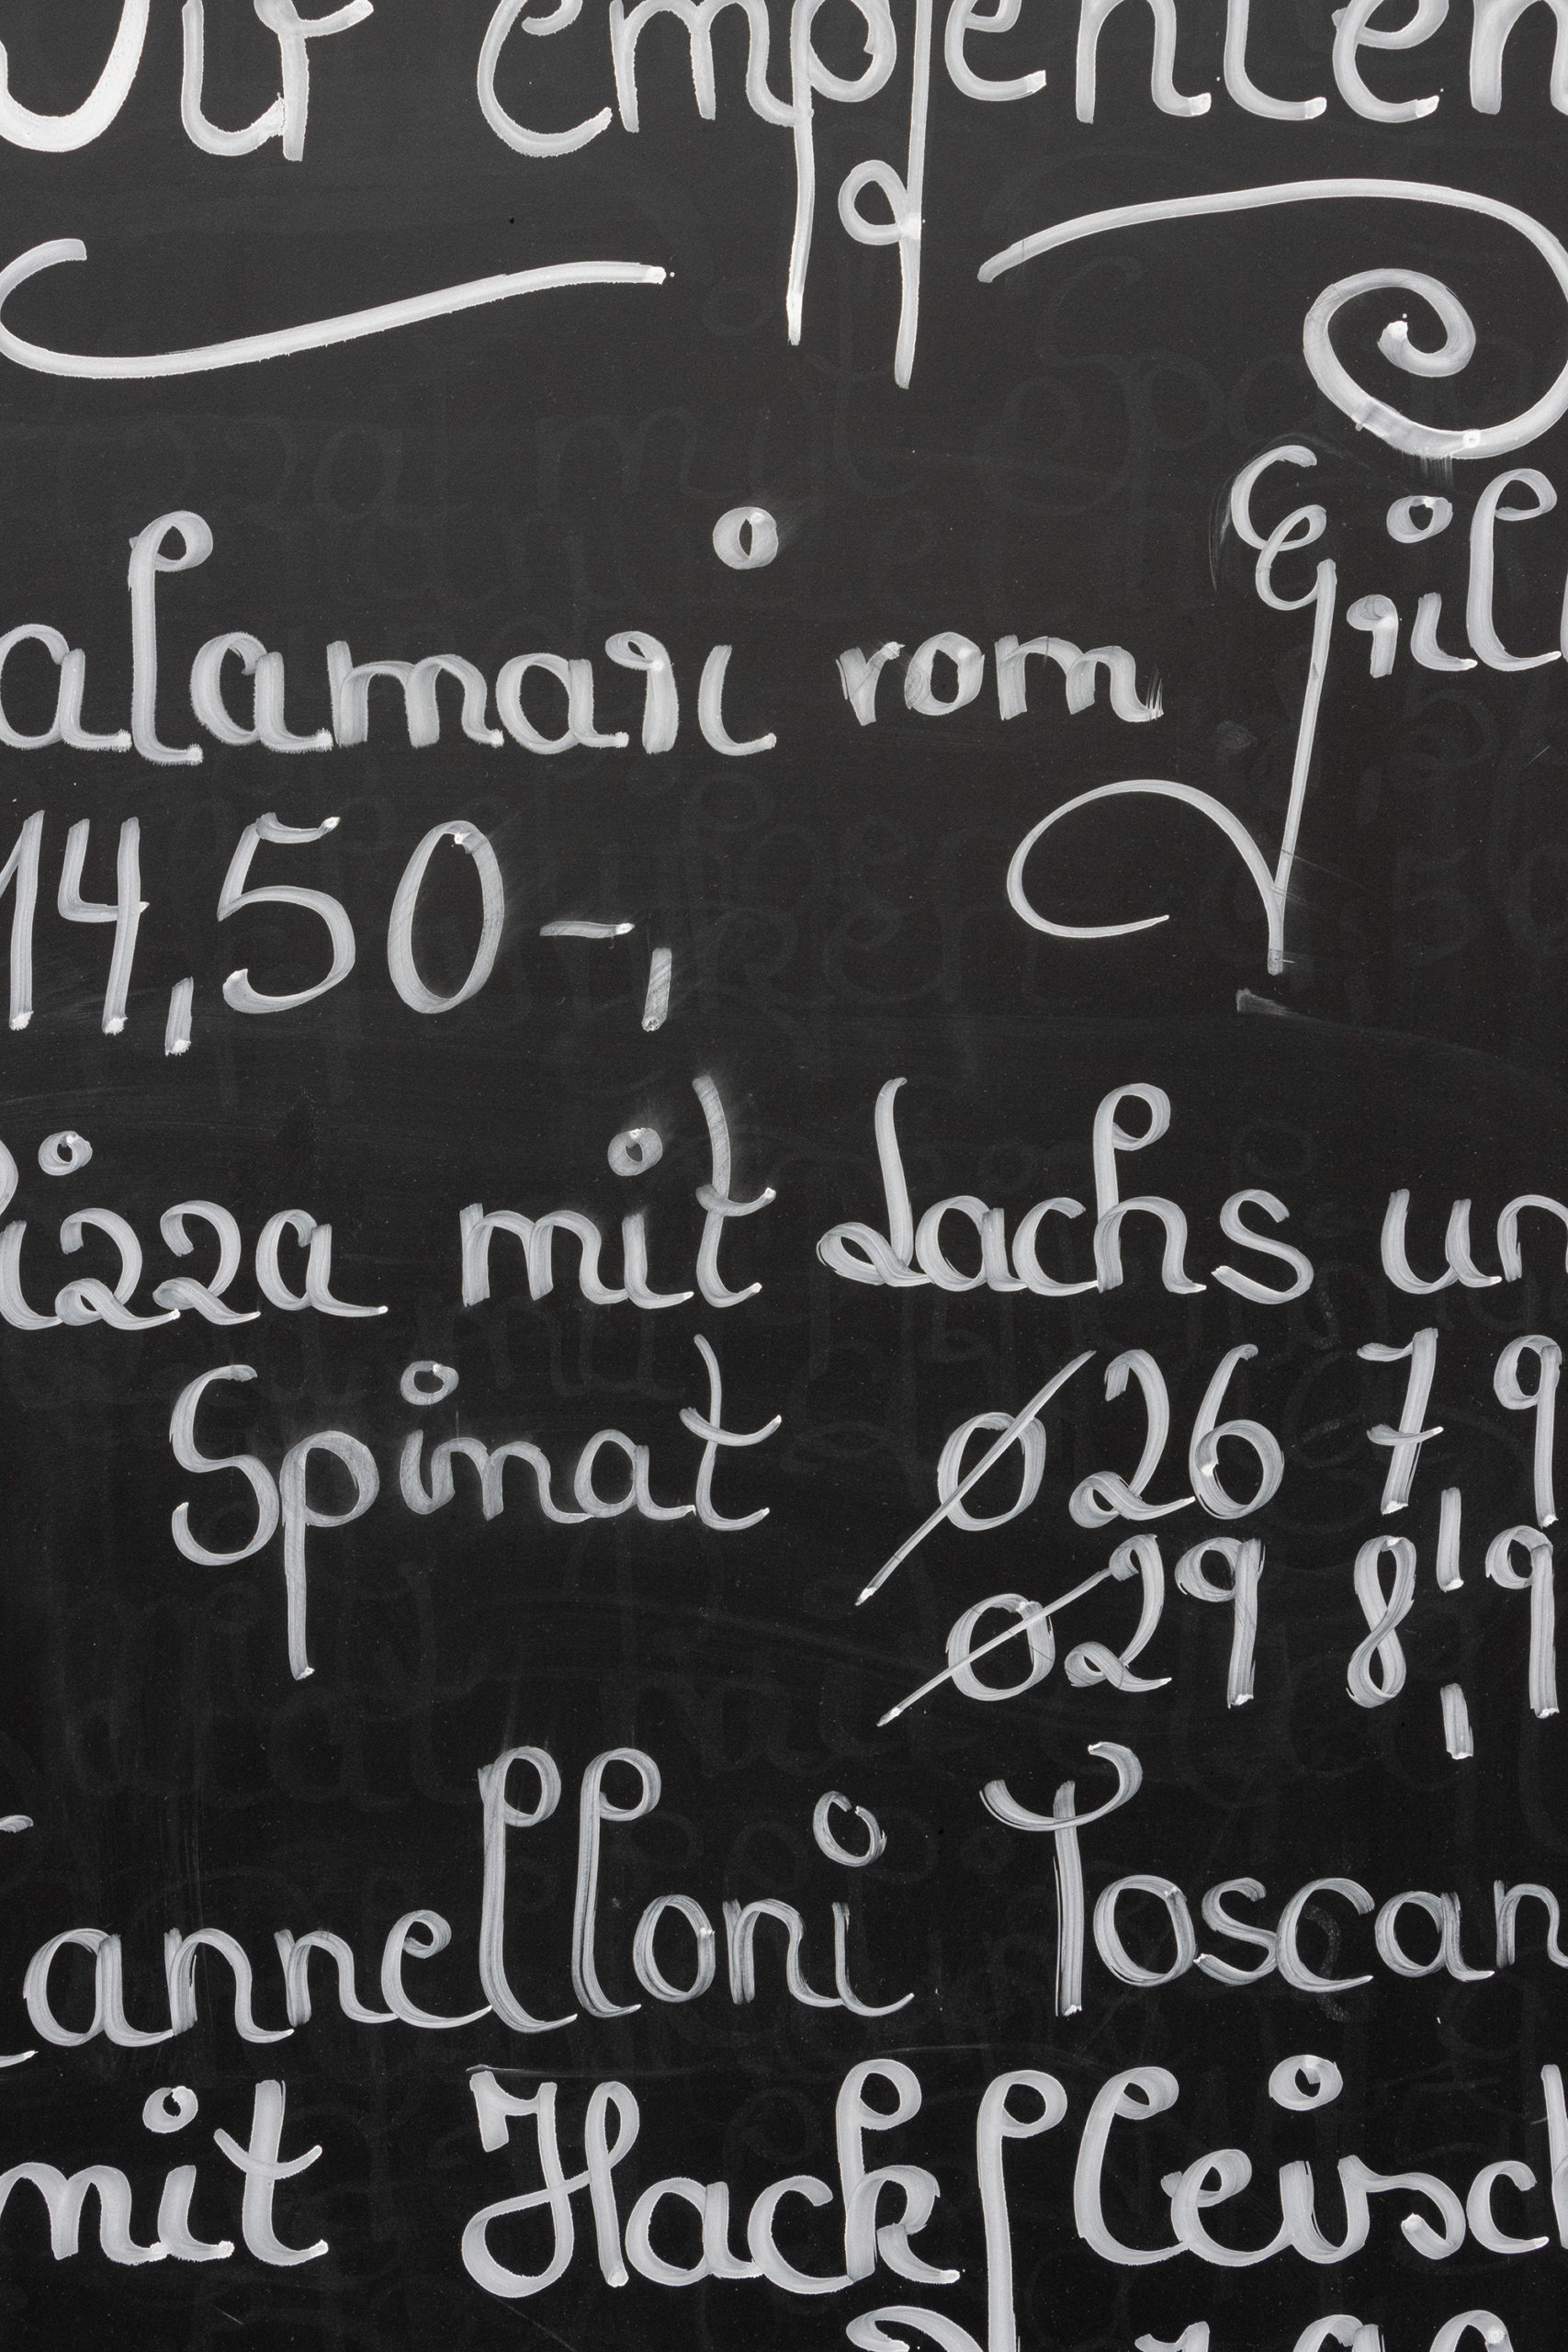 Wir empfehlen
alamari rom Gril
14,50-,
Pizza mit Lachs un
Spinat ø26 7,9
ø29 8,9
Cannelloni Toscan
mit Hackfleisch